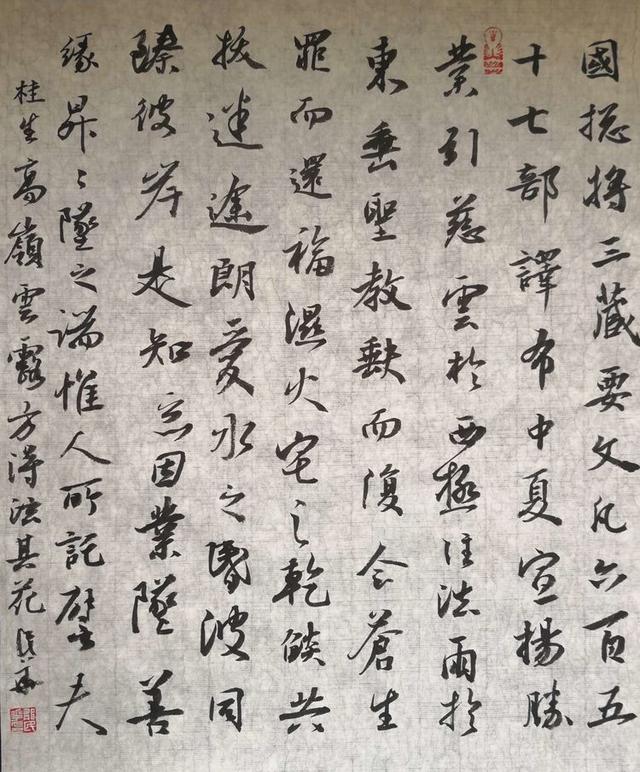 國揔將三藏要文凡六百五
十七部譯布中夏宣揚勝
業引慈雲於西極注法雨於
東垂聖教缺而復全蒼生
罪而還福濕火宅之乾焰共
拔迷途朗愛水之昏波同
臻彼岸是知惡因業墜善
緣昇〻墜之端惟人所託譬夫
桂生高嶺雲露方得泫其花